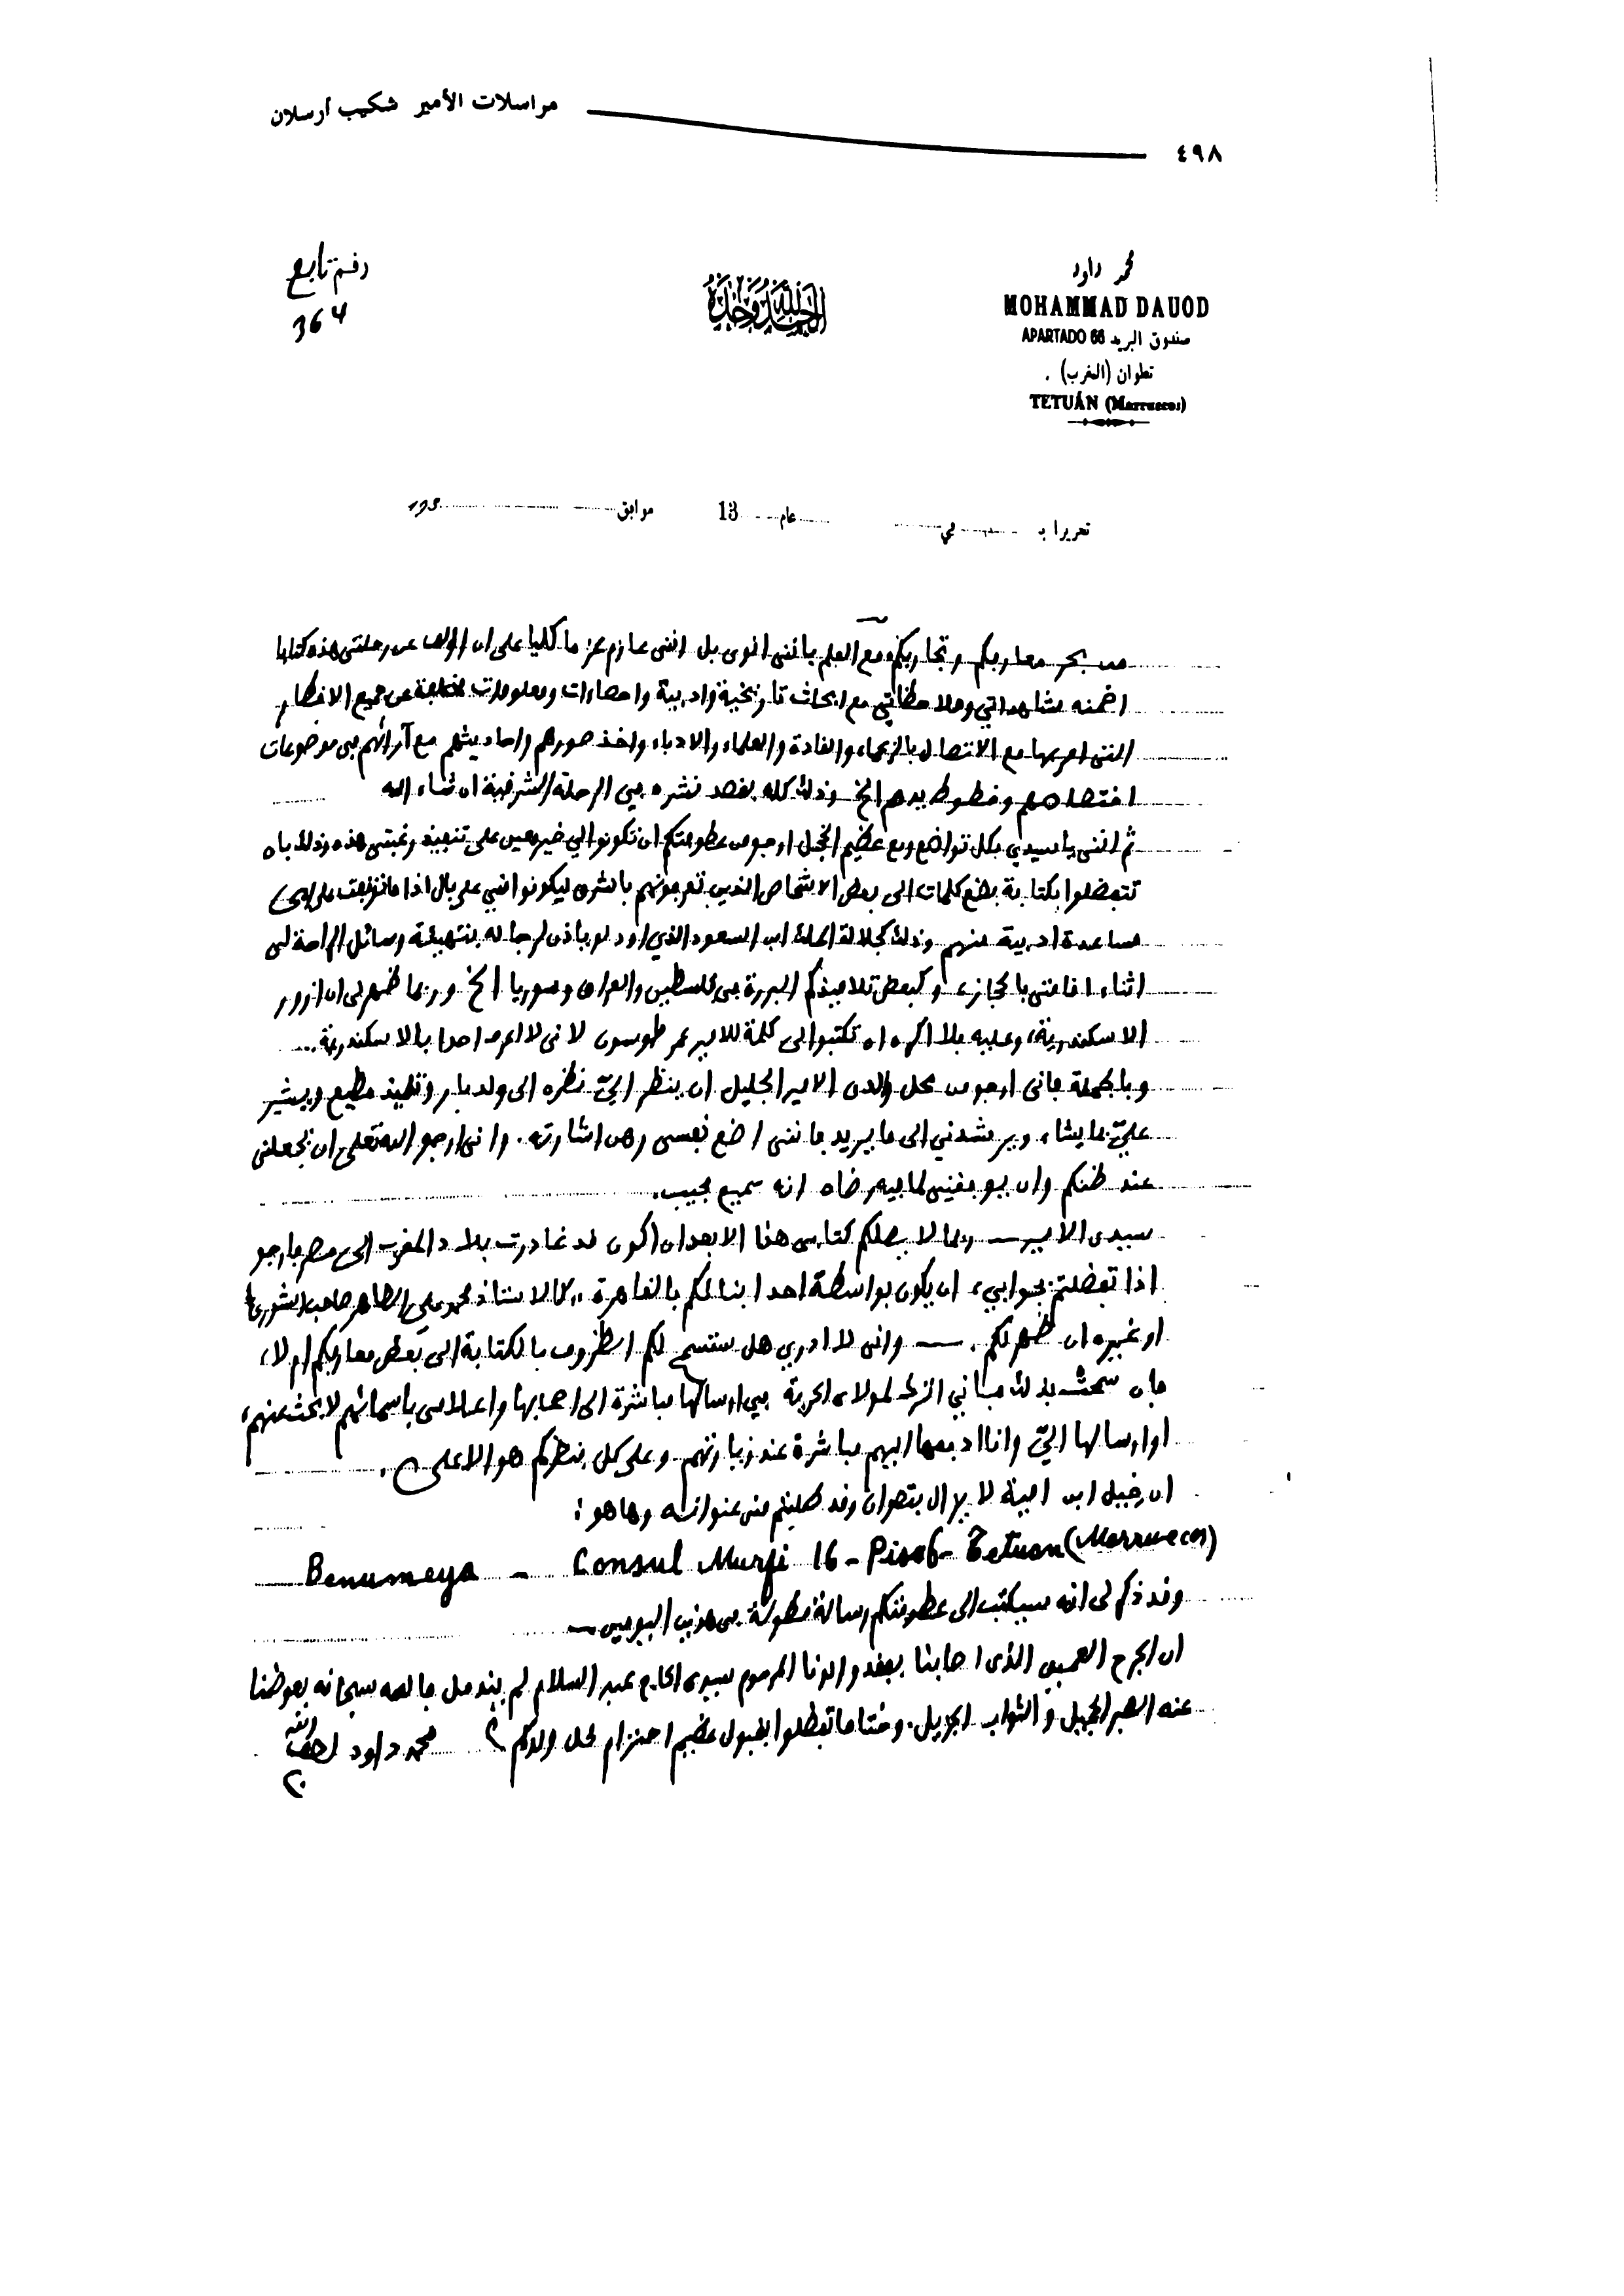 مراسلات الأمير شكيب أرسلان
٤٩٨
رقم تابع
364
الحمد لله وحده
محمد داود
MOHAMMAD DAUOD
APARTADO 66 صندوق البريد
تطوان (المغرب) .
TETUÁN (Marruecos)
تحريرا بـ في عام 13 موافق 193
من بحر معارفكم وتجاربكم ومع العلم بانني انوى بل انني عازم عزما كليا على ان اؤلف عن رحلتي هذه كتابا
اضمنه مشاهداتي وملاحظاتي مع ابحاث تاريخية وادبية واحصاءات ومعلومات مختلفة عن جميع الاقطار
التي امر بها مع الاتصال بالزعماء والقادة والعلماء والادباء واخذ صورهم واحاديثهم مع آرائهم في موضوعات
اختصاصهم وخطوط يدهم الخ وذلك كله بقصد نشره في الرحلة الشرقية ان شاء الله
ثم انني يا سيدي بكل تواضع ومع عظيم الخجل ارجو من عطوفتكم ان تكونوا لي خير معين على تنفيذ رغبتي هذه وذلك بان
تتفضلوا بكتابة بضع كلمات الى بعض الاشخاص الذين تعرفونهم بالشرق ليكونوا مني على بال اذا ما توقفت على اي
مساعدة ادبية منهم وذلك كجلالة الملك ابن السعود الذي اود لو ياذن لرجاله بتهيئة وسائل الراحة لي
اثناء اقامتي بالحجاز، وكبعض تلاميذكم البررة في فلسطين والعراق وسوريا الخ وربما ظهر لي ان ازور
الاسكندرية، وعليه فلا اكره ان تكتبوا لي كلمة للامير عمر طوسون لاني لا اعرف احدا بالاسكندرية...
وبالجملة فاني ارجو من محل والدي الامير الجليل ان ينظر اليّ نظره الى ولد بار وتلميذ مطيع ويشير
عليّ بما يشاء ويرشدني الى ما يريد فانني اضع نفسي رهن اشارته. واني ارجو الله تعلى ان يجعلني
عند ظنكم وان يوفقني لما فيه رضاه انه سميع مجيب.
سيدي الامير — ربما لا يصلكم كتابي هذا الا بعد ان اكون قد غادرت بلاد المغرب الى مصر فارجو
اذا تفضلتم بجوابي، ان يكون بواسطة احد ابنائكم بالقاهرة، كالاستاذ محمد علي الطاهر صاحب الشورى
او غيره ان ظهر لكم. — واني لا ادري هل ستسمح لكم الظروف بالكتابة الى بعض معارفكم ام لا،
فان سمحت بذلك فاني اترك لمولاي الحرية في ارسالها مباشرة الى اصحابها واعلامي باسمائهم لابحث عنهم،
او ارسالها اليّ وانا ادفعها اليهم مباشرة عند زيارتهم وعلى كل فنظركم هو الاعلى.
ان خبيل ابن امية لا يزال بتطوان وقد طلبتم مني عنوانه وها هو:
Benumeya - Consul Murfi 16 - Piso 6 - Tetuan (Marruecos)
وقد ذكر لي انه سيكتب الى عطوفتكم رسالة مطولة في هذين اليومين —
ان الجرح العميق الذي اصابنا بفقد والدنا المرحوم سيدي الحاج عبد السلام لم يندمل فالله سبحانه يعوضنا
عنه الصبر الجميل والثواب الجزيل. وختاما تفضلوا بقبول عظيم احترام محل ولدكم محمد داود لطف الله
به